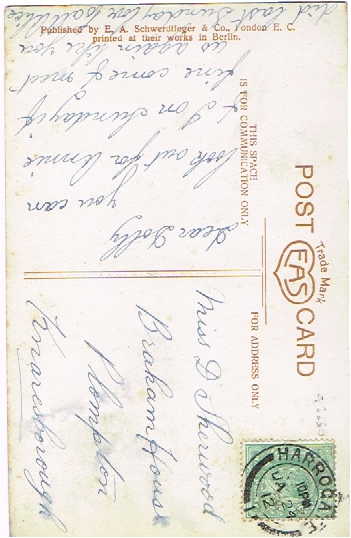 Published by E. A. Schwerdtfeger & Co., London E. C.
printed at their works in Berlin.
POST CARD
Trade Mark
EAS
THIS SPACE
IS FOR COMMUNICATION ONLY
FOR ADDRESS ONLY
Dear Dolly
you can
look out for Annie
& I on Sunday if
fine come & meet
us again like you
did last Sunday love
Miss D Sherwood
Braham House
Plompton
Knaresborough
HARROGATE
10 PM
JA 23
12